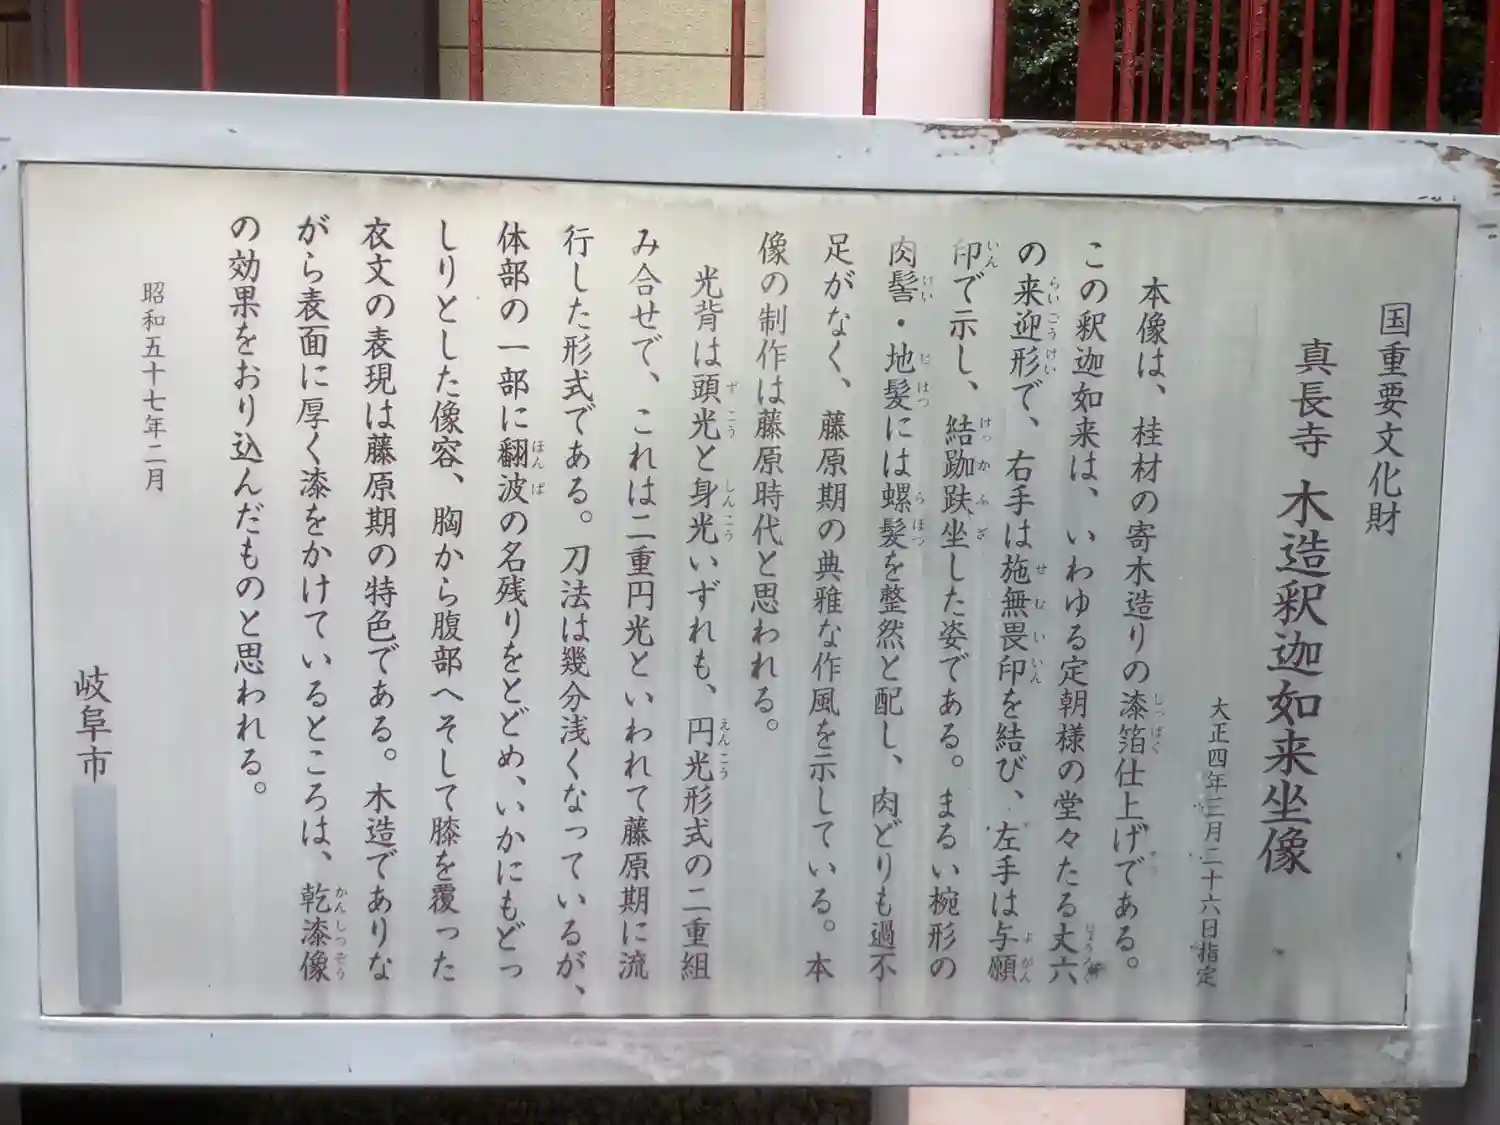 国重要文化財
真長寺 木造釈迦如来坐像
大正四年三月二十六日指定
本像は、桂材の寄木造りの漆箔仕上げである。
この釈迦如来は、いわゆる定朝様の堂々たる丈六
の来迎形で、右手は施無畏印を結び、左手は与願
印で示し、結跏趺坐した姿である。まるい椀形の
肉髻・地髪には螺髪を整然と配し、肉どりも過不
足がなく、藤原期の典雅な作風を示している。本
像の制作は藤原時代と思われる。
光背は頭光と身光いずれも、円光形式の二重組
み合せで、これは二重円光といわれて藤原期に流
行した形式である。刀法は幾分浅くなっているが、
体部の一部に翻波の名残りをとどめ、いかにもどっ
しりとした像容、胸から腹部へそして膝を覆った
衣文の表現は藤原期の特色である。木造でありな
がら表面に厚く漆をかけているところは、乾漆像
の効果をおり込んだものと思われる。
昭和五十七年二月
岐阜市